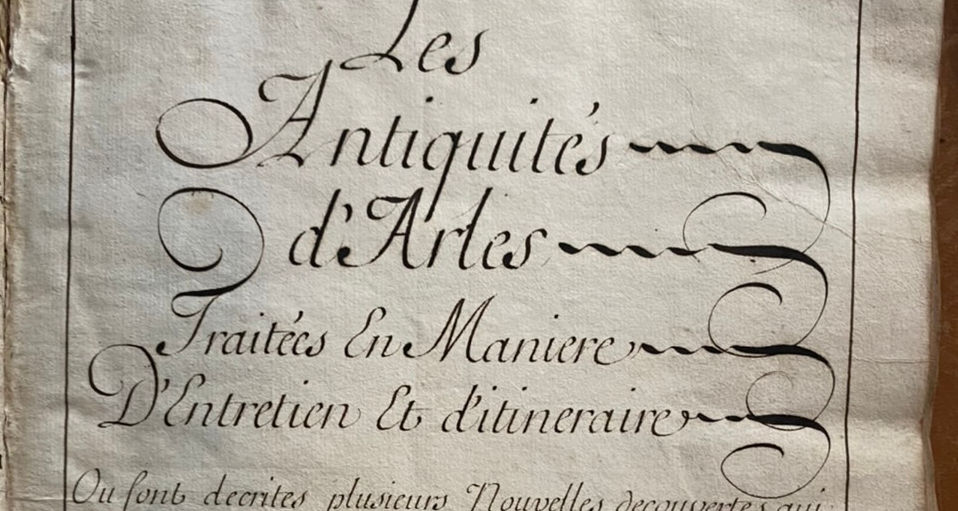 Les
Antiquités
d'Arles
Traitées En Maniere
D'Entretien Et d'itineraire
Ou sont decrites plusieurs Nouvelles decouvertes qui